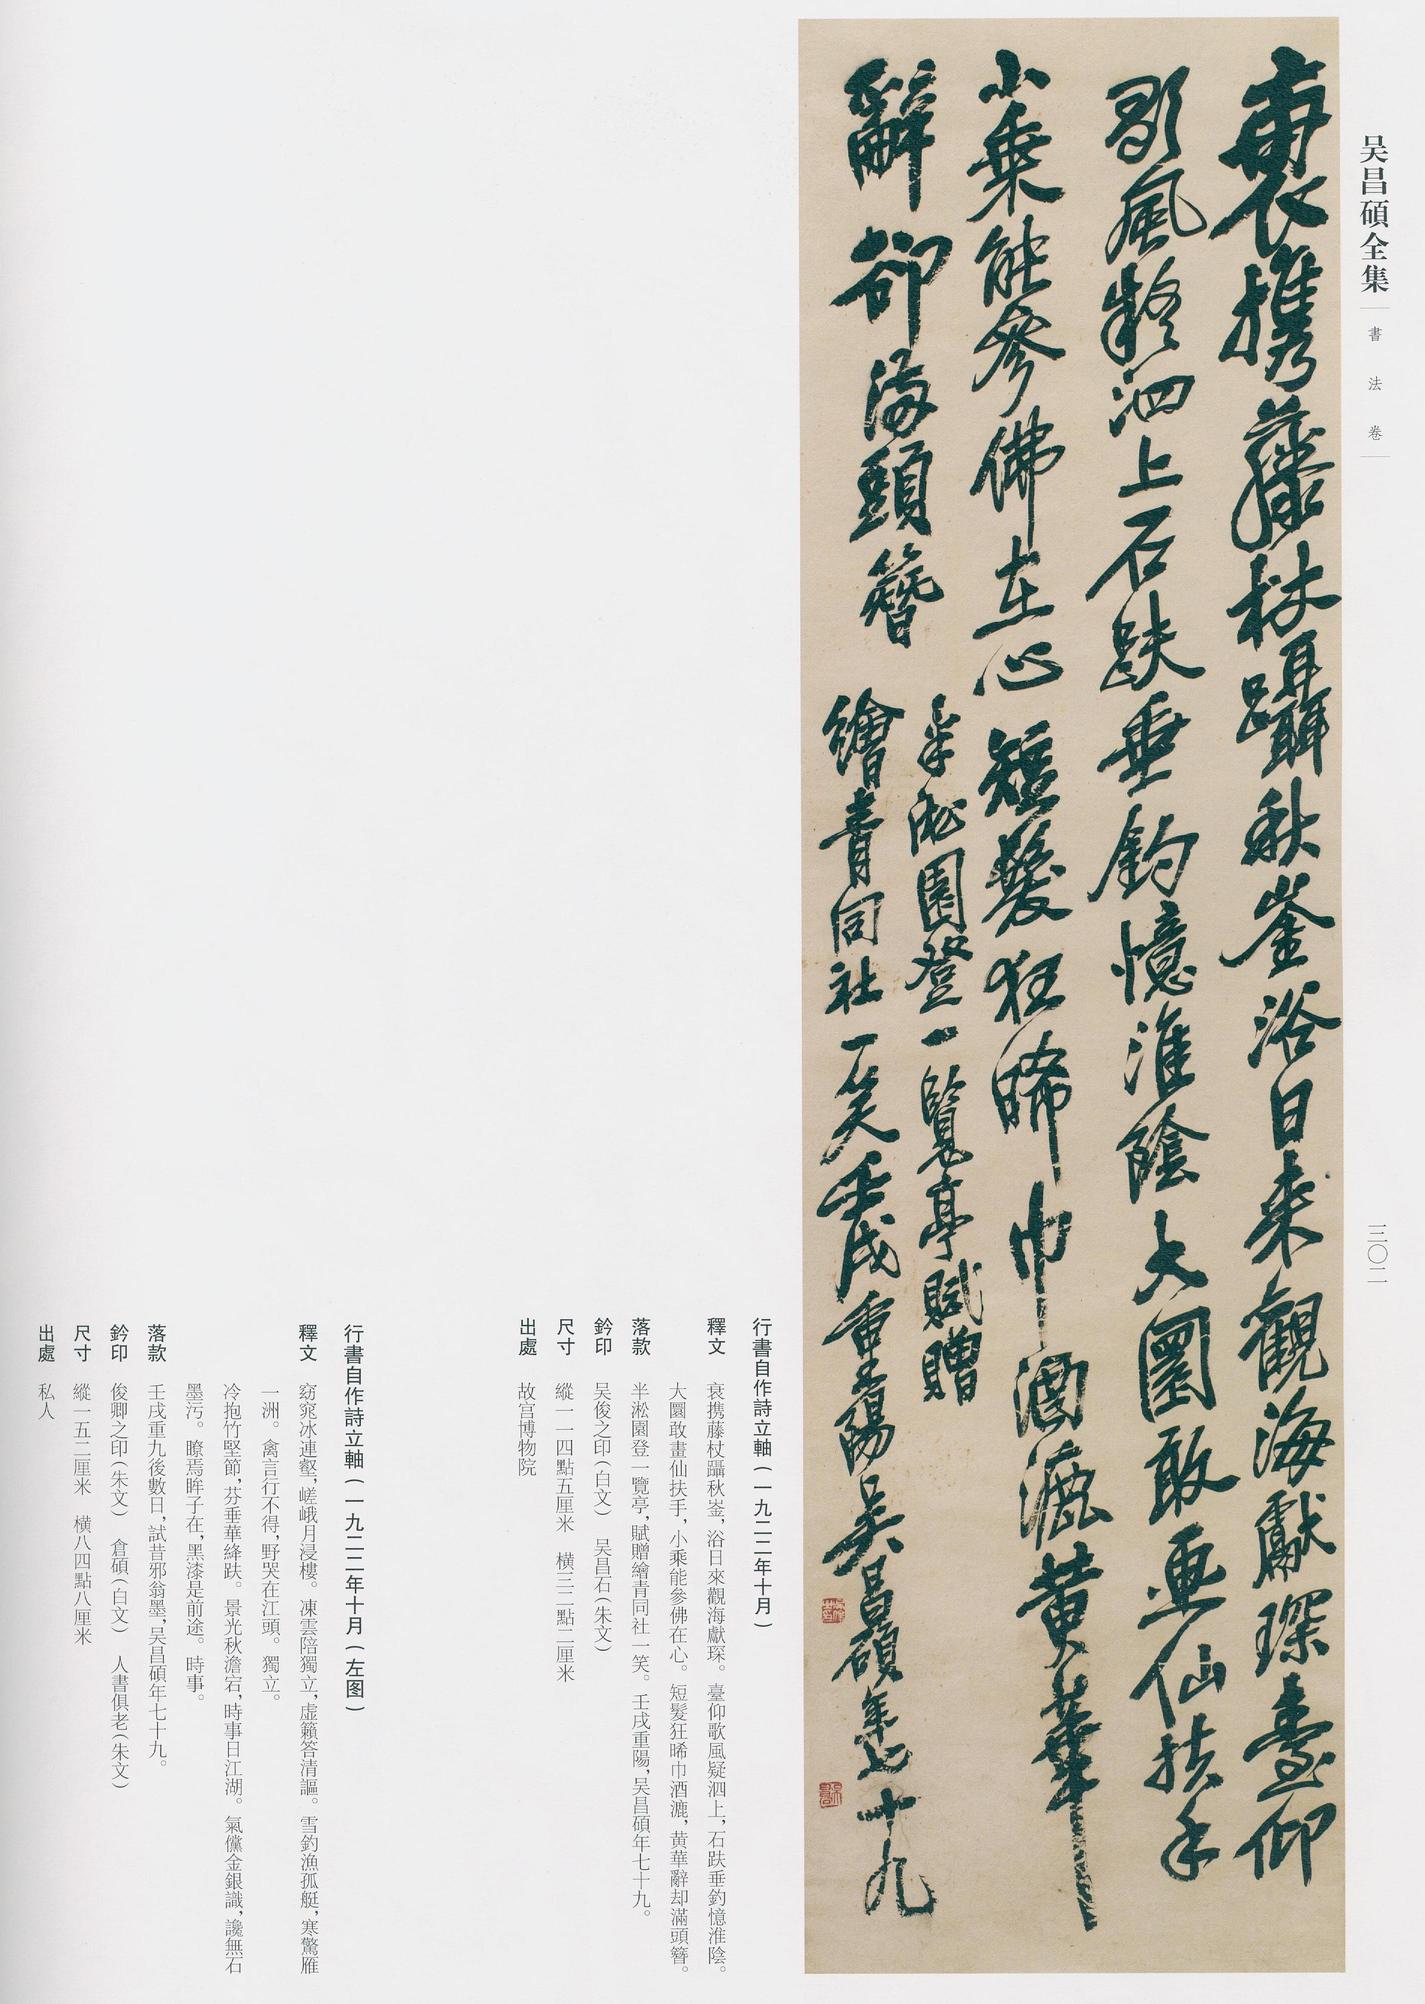 吴昌碩全集
書法卷
三〇二
衰携藤杖躡秋崟浴日来觀海獻琛臺仰
歌風疑泗上石趺垂釣憶淮陰大圜敢画仙扶手
小乘能參佛在心短髮狂晞巾酒漉黄華
辭卻滿頭簪
半淞園登一覽亭賦贈
繪青同社一笑壬戌重陽吴昌碩年七十九
行書自作詩立軸（一九二二年十月）
釋文　衰携藤杖躡秋崟，浴日來觀海獻琛。臺仰歌風疑泗上，石趺垂釣憶淮陰。
大圜敢畫仙扶手，小乘能參佛在心。短髮狂晞巾酒漉，黄華辭却滿頭簪。
落款　半淞園登一覽亭，賦贈繪青同社一笑。壬戌重陽，吴昌碩年七十九。
鈐印　吴俊之印（白文）　吴昌石（朱文）
尺寸　縱一一四點五厘米　横三二點二厘米
出處　故宫博物院
行書自作詩立軸（一九二二年十月（左图）
釋文　窈窕冰連壑，嵯峨月浸樓。凍雲陪獨立，虚籟答清謳。雪釣漁孤艇，寒驚雁
一洲。禽言行不得，野哭在江頭。獨立。
冷抱竹堅節，芬垂華絳趺。景光秋澹宕，時事日江湖。氣儻金銀識，讒無石
墨污。瞭焉眸子在，黑漆是前途。時事。
落款　壬戌重九後數日，試昔邪翁墨，吴昌碩年七十九。
鈐印　俊卿之印（朱文）　倉碩（白文）　人書俱老（朱文）
尺寸　縱一五二厘米　横八四點八厘米
出處　私人